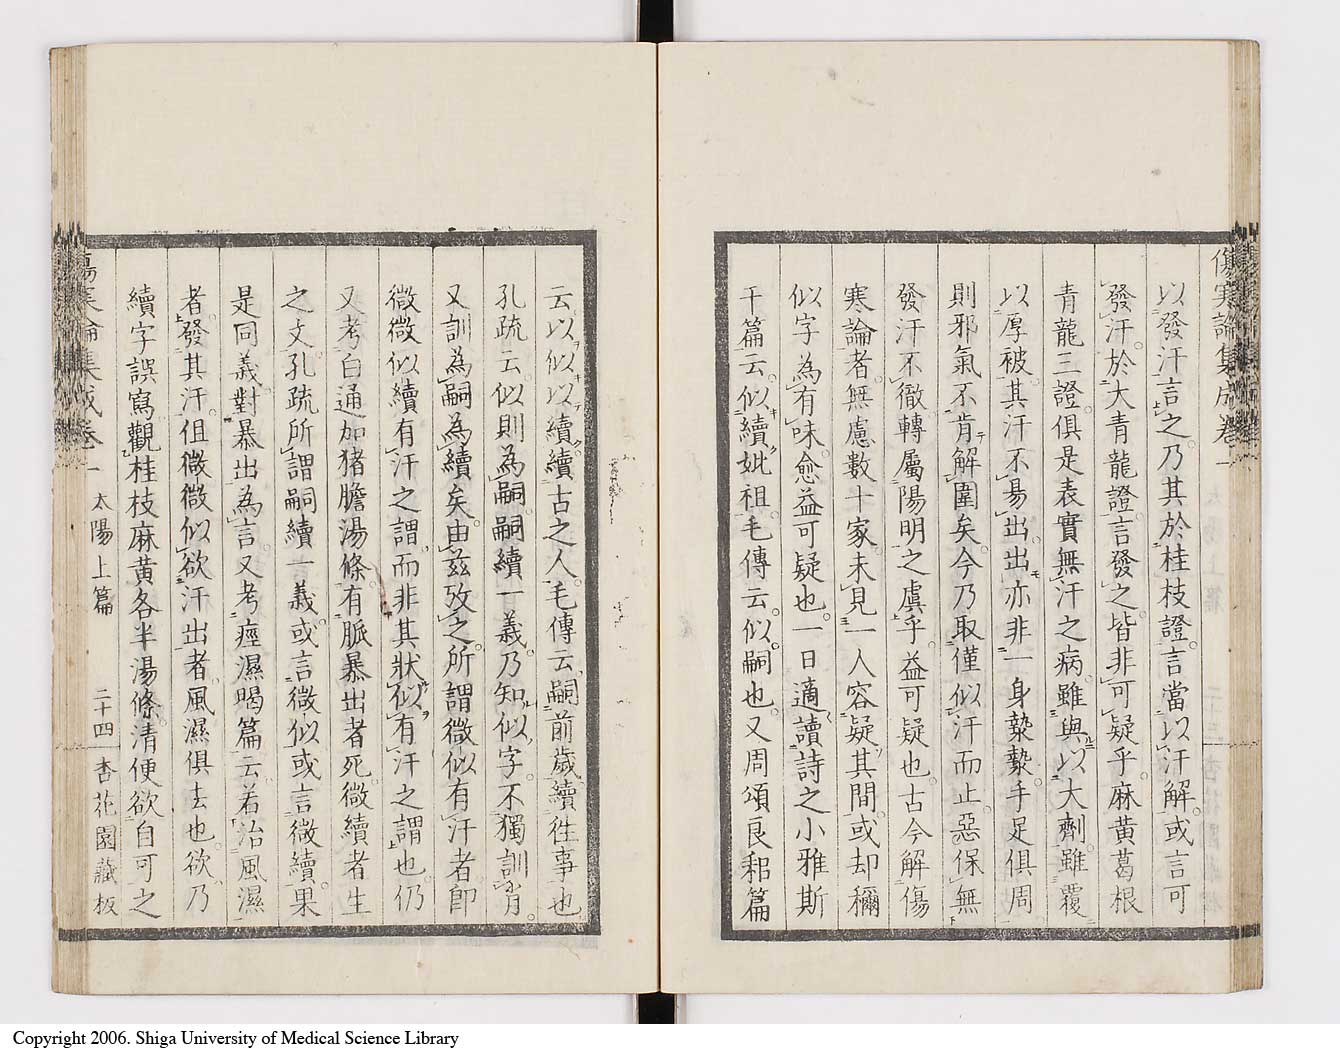 傷寒論集成卷一
以發汗言之乃其於桂枝證言當以汗解或言可
發汗於大青龍證言發之皆非可疑乎麻黃葛根
青龍三證俱是表實無汗之病雖與以大劑雖覆
以厚被其汗不易出出亦非一身漐漐手足俱周
則邪氣不肯解圍矣今乃取僅似汗而止惡保無
發汗不徹轉屬陽明之虞乎益可疑也古今解傷
寒論者無慮數十家未見一人容疑其間或却穪
似字為有味愈益可疑也一日適讀詩之小雅斯
干篇云似續妣祖毛傳云似嗣也又周頌良耜篇
云以似以續續古之人毛傳云嗣前歲續徃事也
孔疏云似則為嗣嗣續一義乃知似字不獨訓肖
又訓為嗣為續矣由茲攷之所謂微似有汗者卽
微微似續有汗之謂而非其狀似有汗之謂也仍
又考白通加猪膽湯條有脈暴出者死微續者生
之文孔疏所謂嗣續一義或言微似或言微續果
是同義對暴出為言又考痙濕暍篇云若治風濕
者發其汗但微微似欲汗出者風濕俱去也欲乃
續字誤寫觀桂枝麻黃各半湯條清便欲自可之
傷寒論集成卷一 太陽上篇 二十四 杏花園藏板
Copyright 2006. Shiga University of Medical Science Library